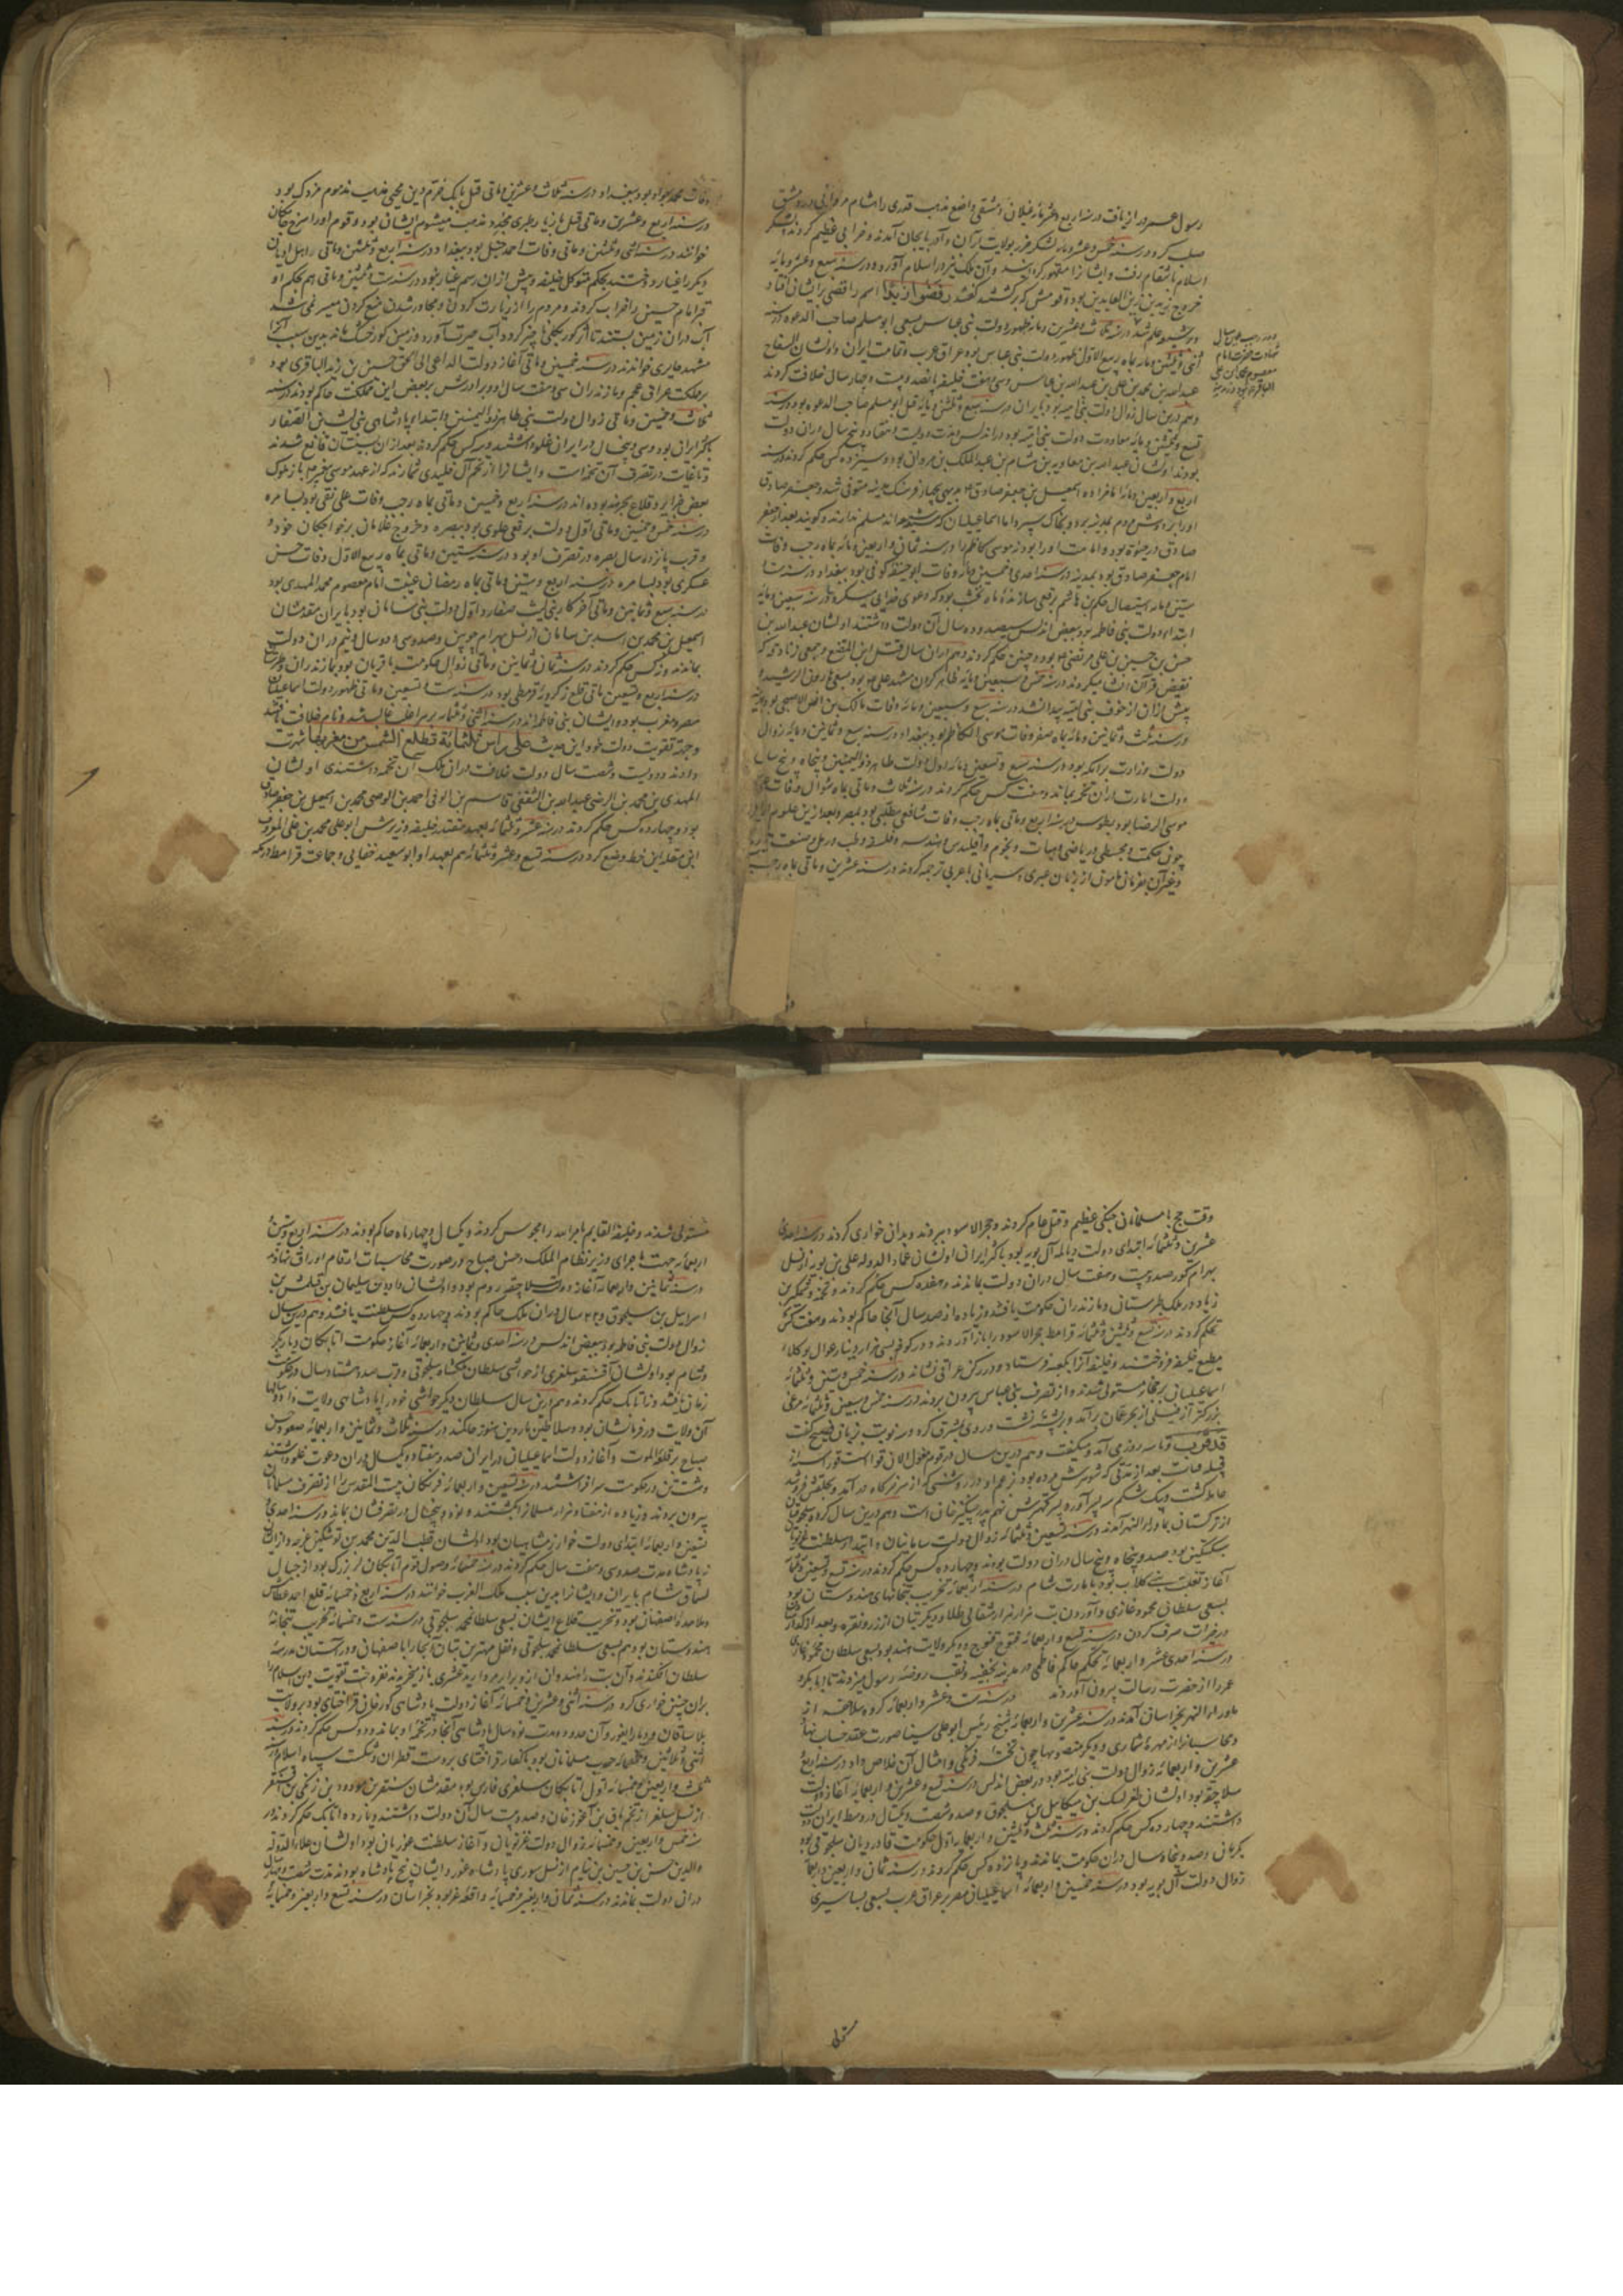 رسول عمر در از یافت در سنه اربع عشر مائه غیلان دمشقی واضع مذهب قدری را هشام مروانی در دمشق
صلب کرد و در سنه خمس و عشر مائه لشکر خزر بولایت اران و آذربایجان آمدند و خرابی عظیم کردند لشکر
اسلام بانتقام رفت و ایشانرا مقهور گردانید و آن ملک نیز در اسلام آورد و در سنه سبع و عشر مائه
خروج زید بن زین العابدین بود قومش که برگشتند گفتند رفضوا زیدا اسم رافضی برایشان افتاد
و بر شیعه علم شد در سنه ثلاث و عشرین و مائه ظهور دولت بنی عباس بسعی ابو مسلم صاحب الدعوه در سنه
اثنی و ثلثین و مائه بماه ربیع الاول ظهور دولت بنی عباس بود عراق عرب و تمامت ایران و اولشان السفاح
عبدالله بن محمد بن علی بن عبدالله بن عباس و سی و هفت خلیفه پانصد و بیست و چهار سال خلافت کردند
و هم درین سال زوال دولت بنی امیه بود بایران در سنه سبع و ثلثین و مائه قتل ابو مسلم صاحب الدعوه بود در سنه
تسع و ثلثین و مائه معاودت دولت بنی امیه بود در اندلس و مدت دویست و هفتاد و پنج سال در آن دولت
بودند اولشان عبدالله بن معاویه بن هشام بن عبدالملک بن مروان بود و سیزده کس حکم کردند در سنه
اربع و اربعین و مائه امام زاده اسمعیل بن جعفر صادق بدیهی چهار فرسنگ مدینه متوفی شد و جعفر صادق
اورا بر دوش مردم بمدینه برد و بخاک سپرد اما اسماعیلیان که شیعه اند مسلم ندارند و گویند بعد از جعفر
صادق در حیوة بود و امامت اورا بود نه موسی کاظم را در سنه ثمان و اربعین و مائه بماه رجب وفات
امام جعفر صادق بود بمدینه در سنه احدی و خمسین و مائه وفات ابو حنیفه کوفی بود ببغداد در سنه ست
ستین و مائه استیصال حکم بن هاشم برقعی سازنده ماه نخشب بود که دعوی خدایی میکرد و در سنه سبعین و مائه
ابتداء دولت بنی فاطمه بود ببعض اندلس سیصد و ده سال آن دولت داشتند اولشان عبدالله بن
حسن بن حسین بن علی مرتضی بود و چنین حکم کردند و هم در آن سال قتل ابن المقنع و جمعی زنادقه که
نقیض قرآن انشا میکردند در سنه خمس و سبعین و مائه ظاهر کردن مشهد علی بود بسعی هارون الرشید و
پیش از آن از خوف بنی امیه پیدا نشد در سنه تسع و سبعین و مائه وفات مالک بن انس الاصبحی بود
در سنه ثلث و ثمانین و مائه بماه صفر وفات موسی الکاظم بود ببغداد در سنه سبع و ثمانین و مائه زوال
دولت وزارت برامکه بود در سنه تسع و تسعین و مائه اول دولت طاهر ذو الیمینین و پنجاه و پنج سال
دولت امارت در آن تخمه بماند و هفت کس حکم کردند در سنه ثلاث و مائتی بماه شوال وفات علی
موسی الرضا بود بطوس در سنه اربع و مائتی بماه رجب وفات شافعی مطلبی بود بمصر و بعد ازین علوم
چون حکمت و مجسطی و ریاضی و هیات و نجوم و اقلیدس و هندسه و فلسفه و طب و رمل و صنعت
و غیر آن بفرمان مامون از زبان عبری و سریانی با عربی ترجمه کردند در سنه عشرین و مائتی بماه رجب
و در رجب این سال
شهادت حضرت امام
معصوم محمد بن علی
الباقر بود در مدینه
وفات محمد جواد بود ببغداد در سنه ثلاث و عشرین و مائتی قتل بابک خرم دین محیی مذهب مذموم مزدک بود
در سنه اربع و عشرین و مائتی قتل مازیار طبری مجدد مذهب میشوم ایشان بود و قوم اورا سرخ جامگان
خوانند در سنه احدی و ثلثین و مائتی وفات احمد حنبل بود ببغداد در سنه اربع و ثلثین و مائتی را اهل ادیان
دیگر را غیار دوختند بحکم متوکل خلیفه و پیش از آن رسم غیار نبود در سنه ست و ثلثین و مائتی هم بحکم او
قبر امام حسین را خراب کردند و مردم را از زیارت کردن و مجاور شدن منع کردن میسر نمی شد
آب در آن زمین بستند تا اثر گور بکلی ناچیز گردد آب حیرت آورد و زمین گور خشک ماند بدین سبب آنرا
مشهد حایری خوانند در سنه خمسین و مائتی آغاز دولت الداعی الی الحق حسن بن زید الباقری بود
بر مملکت عراق عجم و مازندران سی و هفت سال او و برادرش بر بعض این مملکت حاکم بودند در سنه
ثلاث و خمسین و مائتی زوال دولت بنی طاهر ذو الیمینین و ابتداء پادشاهی بنی لیث بن الصفار
باکثر ایران بود و سی و پنج سال در ایران غلو داشتند و سه کس حکم کردند بعد از آن بسیستان قانع شدند
و تا غایت در تصرف آن تخمه است و ایشانرا از تخم آل فلیدی شمارند که از عهد موسی پیغمبر باز ملوک
بعض جزایر و قلاع بحر هند بوده اند در سنه اربع و خمسین و مائتی بماه رجب وفات علی نقی بود بسامره
در سنه خمس و خمسین و مائتی اول دولت برقعی علوی بود ببصره و خروج غلامان بر خواجگان خود
و قرب پانزده سال بصره در تصرف او بود در سنه ستین و مائتی بماه ربیع الاول وفات حسن
عسکری بود بسامره در سنه اربع و ستین و مائتی بماه رمضان غیبت امام معصوم محمد المهدی بود
در سنه سبع و ثمانین و مائتی آخر کار بنی لیث صفار و اول دولت بنی سامان بود بایران مقدمشان
اسمعیل بن احمد بن اسد بن سامان از نسل بهرام چوبین و صد و سی و دو سال و نیم در آن دولت
بماندند و نه کس حکم کردند در سنه ثمان و ثمانین و مائتی زوال حکومت باقریان بود بمازندران و طبرستان
در سنه اربع و تسعین مائتی قلع زکرویه قرمطی بود در سنه ست و تسعین و مائتی ظهور دولت اسماعیلیان
مصر و مغرب بود و ایشان بنی فاطمه اند در سنه اثنی و ثلثمایه بر مراغه غالب شد و نام خلافت
و جهة تقویت دولت خود این حدیث علی راس ثلثمائة تطلع الشمس من مغربها شهرت
دادند و دویست و شصت سال دولت خلافت در آن ملک آن تخمه داشتندی اولشان
المهدی بن محمد بن الرضی عبدالله بن التقی قاسم بن الوفی احمد بن الوصی محمد بن اسمعیل بن جعفر صادق
بود و چهارده کس حکم کردند در سنه عشر و ثلثمائه بعهد مقتدر خلیفه وزیرش ابو علی محمد بن علی المعروف
ابن مقله این خط وضع کرد در سنه تسع و عشر و ثلثمائه هم بعهد او ابو سعید جنابی و جماعت قرامطه در مکه
وقت حج با مسلمانان جنگی عظیم و قتل عام کردند و حجر الاسود ببردند و بدان خواری کردند در سنه احدی
عشرین و ثلثمائه ابتدای دولت دیالمه آل بویه بود باکثر ایران اولشان عماد الدوله علی بن بویه از نسل
بهرام گور صد و بیست و هفت سال در آن دولت بماندند و هفده کس حکم کردند و تخمه وشمگیر بن
زیاد در ملک طبرستان و مازندران حکومت یافتند و زیاده از صد سال آنجا حاکم بودند و هفت کس
حکم کردند در سنه تسع و ثلثین و ثلثمائه قرامطه حجر الاسود را باز آوردند و در کوفه بسی هزار دینار عوال بوکلاء
مطیع خلیفه فروختند و خلیفه آنرا بکعبه فرستاد و در رکن عراقی نشاند در سنه خمس و ستین و ثلثمائه
اسماعیلیان بر حجاز مستولی شدند و از تصرف بنی عباس بیرون بردند در سنه خمس و سبعین و ثلثمائه مرغی
بزرگتر از فیلی از بحر عمان برآمد و بر پشته نشست و روی بشرق کرد و سه نوبت بزبانی فصیح گفت
قد قرب و تا سه روز می آمد و میگفت و هم درین سال در قوم مغول الان قوا است قور
قبیله حیات بعد از مدتی که شوهرش مرده بود بزعم او از روشنی که از سر خرگاه در آمد و بحلقش فرو شد
حامله گشت و بیک شکم سه پسر آورد پسر کهترش نهم پدر چنگیز خان است و هم درین سال گروه سلجوقیان
از ترکستان بماوراء النهر آمدند در سنه تسعین و ثلثمائه زوال دولت سامانیان و ابتداء سلطنت غزنویان
سبکتکین بود صد و پنجاه و پنج سال در آن دولت بودند و چهارده کس حکم کردند در سنه
آغاز تغلب بنی کلاب بود بامارت شام در سنه اربعمائه تخریب بتخانهای هندوستان بود
بسعی سلطان محمود غازی و آوردن بت هزار هزار مثقالی طلا و دیگر بتان از زر و نقره و بعد از گداز
در خیرات صرف کردن در سنه تسع و اربعمائه فتوح قنوج و دیگر ولایت هند بود بسعی سلطان محمود غازی
در سنه احدی عشر و اربعمائه بحکم حاکم فاطمی در مدینه بخفیه نقب بروضه رسول میزدند تا ابابکر و
عمر را از حضرت رسالت بیرون آوردند در سنه ست و عشر و اربعمائه گروه سلاجقه از
ماوراء النهر بخراسان آمدند در سنه عشرین و اربعمائه شیخ رئیس ابو علی سینا صورت عقد حساب نهاد
و محاسبانرا از مهره شماری و دیگر صنعتها چون تخته فرنگی و امثال آن خلاص داد در سنه اربع
عشرین و اربعمائه زوال دولت بنی امیه بود در بعض اندلس در سنه تسع و عشرین و اربعمائه آغاز دولت
سلاجقه بود اولشان طغرلبک بن میکائیل بن سلجوق و صد و شصت و یکسال در وسط ایران دولت
داشتند و چهارده کس حکم کردند در سنه ثلث و ثلثین و اربعمائه اول حکومت قاوردیان سلجوقی بود
بکرمان و صد و پنجاه سال در آن حکومت بماندند و یازده کس حکم کردند در سنه ثمان و اربعین و اربعمائه
زوال دولت آل بویه بود در سنه خمسین و اربعمائه اسماعیلیان مصر بر عراق عرب بسعی بساسیری
مستولی
مستولی شدند و خلیفه القایم بامر الله را محبوس کردند و یکسال و چهار ماه حاکم بودند در سنه اربع و ستین
اربعمائه جهت ماجرای وزیر نظام الملک و حسن صباح در صورت محاسبات ارقام اوراق نهاند
در سنه ثمانین و اربعمائه آغاز دولت سلاجقه روم بود و اولشان داود بن سلیمان بن قتلمش بن
اسرائیل بن سلجوق و ۲۲۰ سال در آن ملک حاکم بودند و چهارده کس سلطنت یافتند و هم درین سال
زوال دولت بنی فاطمه بود ببعض اندلس در سنه احدی و ثمانین و اربعمائه آغاز حکومت اتابکان دیار بکر
و شام بود اولشان آقسنقر سلغری از حواشی سلطان ملکشاه سلجوقی و قرب صد و هشتاد سال دولت
زمان یافتند و نه اتابک حکم کردند و هم درین سال سلطان دیگر حواشی خود را با پادشاهی ولایت داد و سالها
آن ولایت در فرمانشان بود و سلاطین ماردین هنوز حاکمند در سنه ثلاث و ثمانین و اربعمائه صعود حسن
صباح بر قلعه الموت و آغاز دولت اسماعیلیان در ایران صد و هفتاد و یکسال در آن دعوت غلو داشتند
و هشت تن در حکومت سرافراشتند در سنه تسعین و اربعمائه فرنگان بیت المقدس را از تصرف مسلمانان
بیرون بردند و زیاده از هفتاد هزار مسلمانرا بکشتند و نود و پنجسال در تصرفشان بماند در سنه احدی
تسعین و اربعمائه ابتدای دولت خوارزمشاهیان بود اولشان قطب الدین محمد بن نوشتکین غرجه و از ایشان
نه پادشاه مدت صد و سی و هفت سال حکم کردند در سنه خمسمائه وصول قوم اتابکان لر بزرگ بود از جبال
السماق شام بایران و ایشانرا بدین سبب ملک الغرب خوانند در سنه اربع و خمسمائه قلع احمد عطاش
و ملاحده اصفهان بود و تخریب قلاع ایشان بسعی سلطان محمد سلجوقی در سنه ست و خمسمائه تخریب بتخانه
هندوستان بود هم بسعی سلطان محمد سلجوقی و نقل مهترین بتان آنجا را باصفهان و در آستان مدرسه
سلطان افکندند و آن بت را هندوان ازو برابر مروارید عشری باز میخریدند نفروخت تقویت دین اسلام را
بدان چنین خواری کرد در سنه اثنی و عشرین و خمسمائه آغاز دولت پادشاهی گورخان قراختای بود بر ولایت
بلاساقان و دیار ایغور و آن حدود و مدت نود سال پادشاهی آنجا در تخمه او بماند و دو کس حکم کردند در سنه
ثنی و ثلاثین و خمسمائه حرب مسلمانان بود با کفار قراختای بدر دست قطران و شکست سپاه اسلام
ثلث و اربعین و خمسمائه اول اتابکان سلغری فارس بود مقدمشان سنقر بن مودود بن زنگی بن آقسنقر
از نسل سلغر از تخم باق بن آغوز خان و صد و بیست سال آن دولت داشتند و یازده اتابک حکم کردند در
سنه خمس و اربعین و خمسمائه زوال دولت غزنویان و آغاز سلطنت غوریان بود اولشان علاء الدوله
والدین حسن بن حسین بن سام از نسل سوری پادشاه غور و ایشان پنج پادشاه بودند مدت شصت و چهار سال
در آن دولت بماندند در سنه ثمان و اربعین و خمسمائه واقعه غز بود بخراسان در سنه تسع و اربعین و خمسمائه